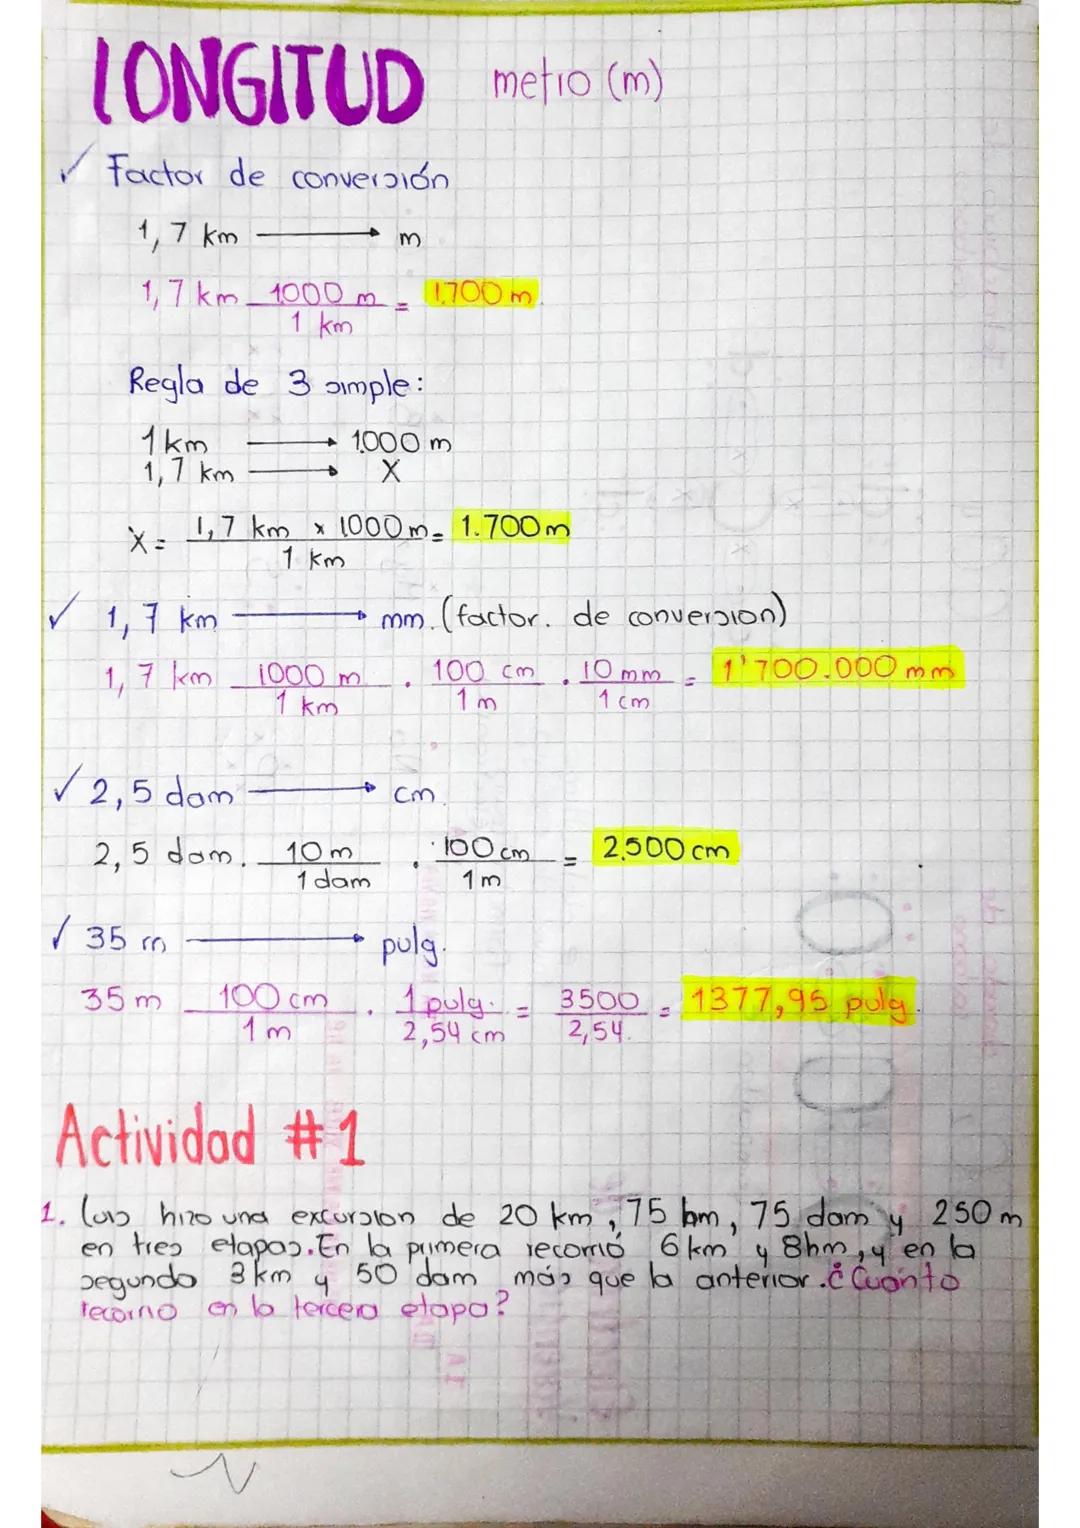 LONGITUD metro (m)
✓ Factor de conversión
1,7 km → m
1,7 km 1000 m = 1.700 m
1 km
Regla de 3 simple:
1 km → 1000 m
1,7 km → X
X = 1,7 km x 1000 m = 1.700 m
1 km
✓ 1,7 km → mm. (factor. de conversion)
1,7 km 1000 m . 100 cm . 10 mm = 1'700.000 mm
1 km 1 m 1 cm
✓ 2,5 dam → cm.
2,5 dam. 10 m . 100 cm = 2.500 cm
1 dam 1 m
✓ 35 m → pulg.
35 m 100 cm . 1 pulg. = 3500 = 1377,95 pulg.
1 m 2,54 cm 2,54.
Actividad #1
1. Luis hizo una excursion de 20 km, 75 hm, 75 dam y 250 m
en tres etapas. En la primera recorrió 6 km y 8 hm, y en la
segundo 3 km y 50 dam más que la anterior. ¿Cuánto
recorrio en la tercera etapa?